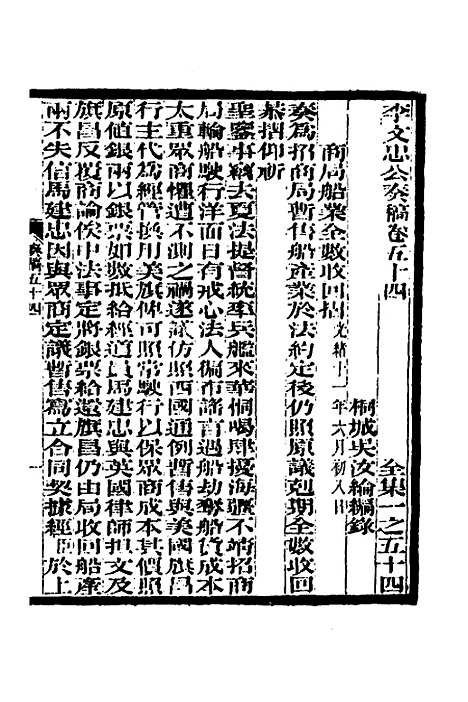 李文忠公奏稿卷五十四
全集一之五十四
桐城吳汝綸編錄
商局船業全數收回摺
光緒十一年六月初八日
奏爲招商局暫售船產業於法約定後仍照原議剋期全數收回
恭摺仰祈
聖鑒事竊去夏法提督統率兵艦來華恫喝肆擾海疆不靖招商
局輪船駛行洋面日有戒心法人徧布謠言遇船劫奪船貨成本
太重眾商惴遭不測之禍遂議仿照西國通例暫售與美國旗昌
行主代爲經管換用美旗俾可照常駛行以保眾商成本其價照
原值銀兩以銀票如數抵給經道員馬建忠與英國律師担文及
旗昌反覆商論俟中法事定將銀票給還旗昌仍由局收回船產
兩不失信馬建忠因與眾商定議暫售寫立合同契據經臣於上
奏稿五十四
一